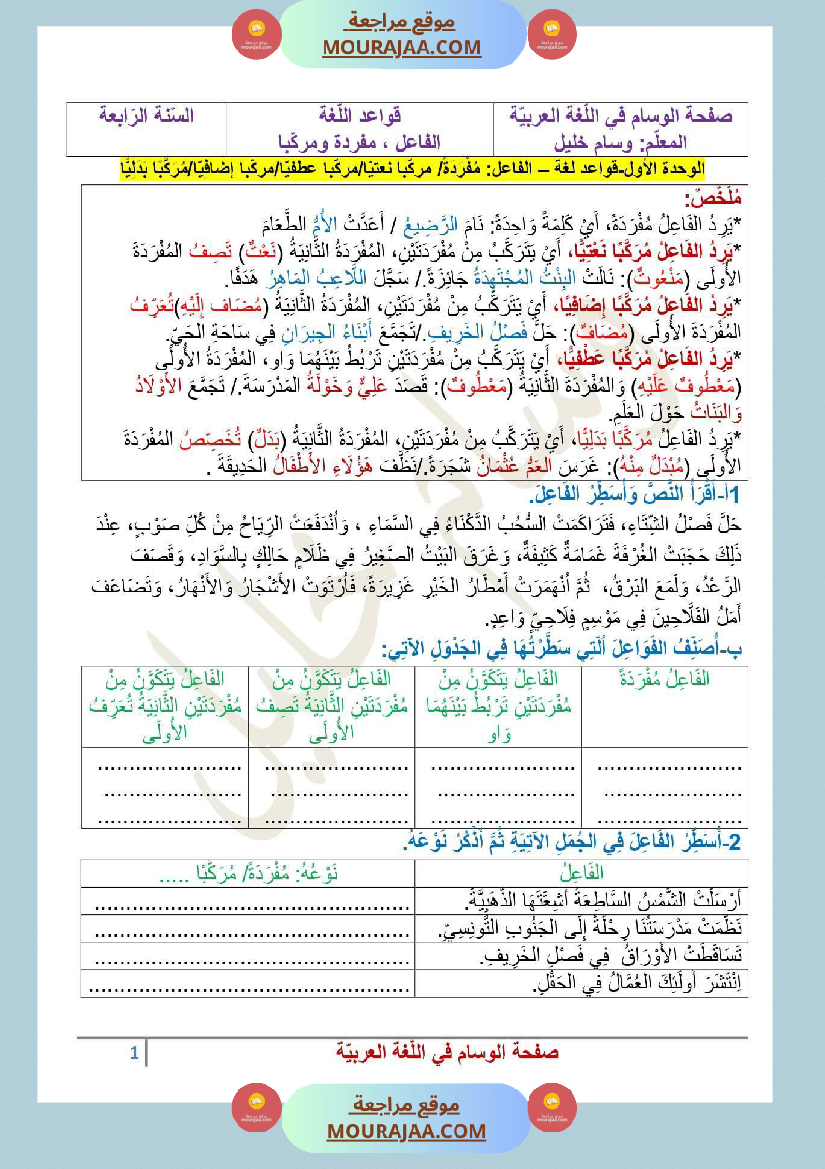 موقع مراجعة
MOURAJAA.COM
صفحة الوسام في اللّغة العربيّة
المعلّم: وسام خليل
قواعد اللّغة
الفاعل ، مفردة ومركّبا
السّنة الرّابعة
الوحدة الأولى-قواعد لغة – الفاعل: مُفْرَدَةً/ مركّبا نعتيّا/مركّبا عطفيّا/مركّبا إضافيّا/مُرَكَّبًا بَدَلِيًّا
مُلَخَّصٌ:
*يَرِدُ الفَاعِلُ مُفْرَدَةً، أَيْ كَلِمَةً وَاحِدَةً: نَامَ الرَّضِيعُ / أَعَدَّتْ الأُمُّ الطَّعَامَ
*يَرِدُ الفَاعِلُ مُرَكَّبًا نَعْتِيًّا، أَيْ يَتَرَكَّبُ مِنْ مُفْرَدَتَيْنِ، المُفْرَدَةُ الثَّانِيَةُ (نَعْتٌ) تَصِفُ المُفْرَدَةَ
الأُولَى (مَنْعُوتٌ): نَالَتْ البِنْتُ المُجْتَهِدَةُ جَائِزَةً./ سَجَّلَ اللَّاعِبُ المَاهِرُ هَدَفًا.
*يَرِدُ الفَاعِلُ مُرَكَّبًا إضَافِيًا، أَيْ يَتَرَكَّبُ مِنْ مُفْرَدَتَيْنِ، المُفْرَدَةُ الثَّانِيَةُ (مُضَاف إِلَيْهِ)تُعَرِّفُ
المُفْرَدَةَ الأُولَى (مُضَافٌ): حَلَّ فَصْلُ الخَرِيفِ./تَجَمَّعَ أَبْنَاءُ الجِيرَانِ فِي سَاحَةِ الحَيِّ.
*يَرِدُ الفَاعِلُ مُرَكَّبًا عَطْفِيًّا، أَيْ يَتَرَكَّبُ مِنْ مُفْرَدَتَيْنِ تَرْبُطُ بَيْنَهُمَا وَاو، المُفْرَدَةُ الأُولَى
(مَعْطُوفٌ عَلَيْهِ) وَالمُفْرَدَةَ الثَّانِيَةُ (مَعْطُوفٌ): قَصَدَ عَلِيٌّ وَخَوْلَةُ المَدْرَسَةَ./ تَجَمَّعَ الأَوْلَادُ
وَالبَنَاتُ حَوْلَ العَلَمِ.
*يَرِدُ الفَاعِلُ مُرَكَّبًا بَدَلِيًّا، أَيْ يَتَرَكَّبُ مِنْ مُفْرَدَتَيْنِ، المُفْرَدَةُ الثَّانِيَةُ (بَدَلٌ) تُخَصِّصُ المُفْرَدَةَ
الأُولَى (مُبْدَلٌ مِنْهُ): غَرَسَ العَمُّ عُثْمَانُ شَجَرَةً./نَظَّفَ هَؤُلَاءِ الأَطْفَالُ الحَدِيقَةَ .
1أ-أَقْرَأُ النَّصَّ وَأُسَطِّرُ الفَاعِلَ.
حَلَّ فَصْلُ الشِّتَاءِ، فَتَرَاكَمَتْ السُّحُبُ الدَّكْنَاءُ فِي السَّمَاءِ ، وَاُنْدَفَعَتْ الرِّيَاحُ مِنْ كُلِّ صَوْبٍ، عِنْدَ
ذَلِكَ حَجَبَتْ الغُرْفَةَ غَمَامَةٌ كَثِيفَةٌ، وَغَرَقَ البَيْتُ الصَّغِيرُ فِي ظَلَامٍ حَالِكٍ بِالسَّوَادِ، وَقَصَفَ
الرَّعْدُ، وَلَمَعَ البَرْقُ، ثُمَّ اُنْهَمَرَتْ أَمْطَارُ الخَيْرِ غَزِيرَةً، فَاُرْتَوَتْ الأَشْجَارُ وَالأَنْهَارُ، وَتَضَاعَفَ
أَمَلُ الفَلَّاحِينَ فِي مَوْسِمٍ فِلَاحِيٍّ وَاعِدٍ.
ب-أُصَنِّفُ الفَوَاعِلَ اُلَّتِي سَطَّرْتُهَا فِي الجَدْوَلِ الآتِي:
الفَاعِلُ مُفْرَدَةً
الفَاعِلُ يَتَكَوَّنُ مِنْ
مُفْرَدَتَيْنِ تَرْبُطُ بَيْنَهُمَا
وَاو
الفَاعِلُ يَتَكَوَّنُ مِنْ
مُفْرَدَتَيْنِ الثَّانِيَةُ تَصِفُ
الأُولَى
الفَاعِلُ يَتَكَوَّنُ مِنْ
مُفْرَدَتَيْنِ الثَّانِيَةُ تُعَرِّفُ
الأُولَى
....................... ....................... ....................... .......................
...................... ...................... ...................... ......................
....................... ....................... ....................... .......................
2-أُسَطِّرُ الفَاعِلَ فِي الجُمَلِ الآتِيَةِ ثُمَّ أَذْكُرُ نَوْعَهُ.
الفَاعِلُ
نَوْعُهُ: مُفْرَدَةً/ مُرَكَّبًا .....
أَرْسَلَتْ الشَّمْسُ السَّاطِعَةُ أَشِعَّتَهَا الذَّهَبِيَّةَ. ..................................................
نَظَّمَتْ مَدْرَسَتُنَا رِحْلَةً إِلَى الجَنُوبِ التُّونِسِيِّ. ..................................................
تَسَاقَطَتْ الأَوْرَاقُ فِي فَصْلِ الخَرِيفِ. ..................................................
اِنْتَشَرَ أُولَئِكَ العُمَّالُ فِي الحَقْلِ. ..................................................
صفحة الوسام في اللّغة العربيّة
1
موقع مراجعة
MOURAJAA.COM